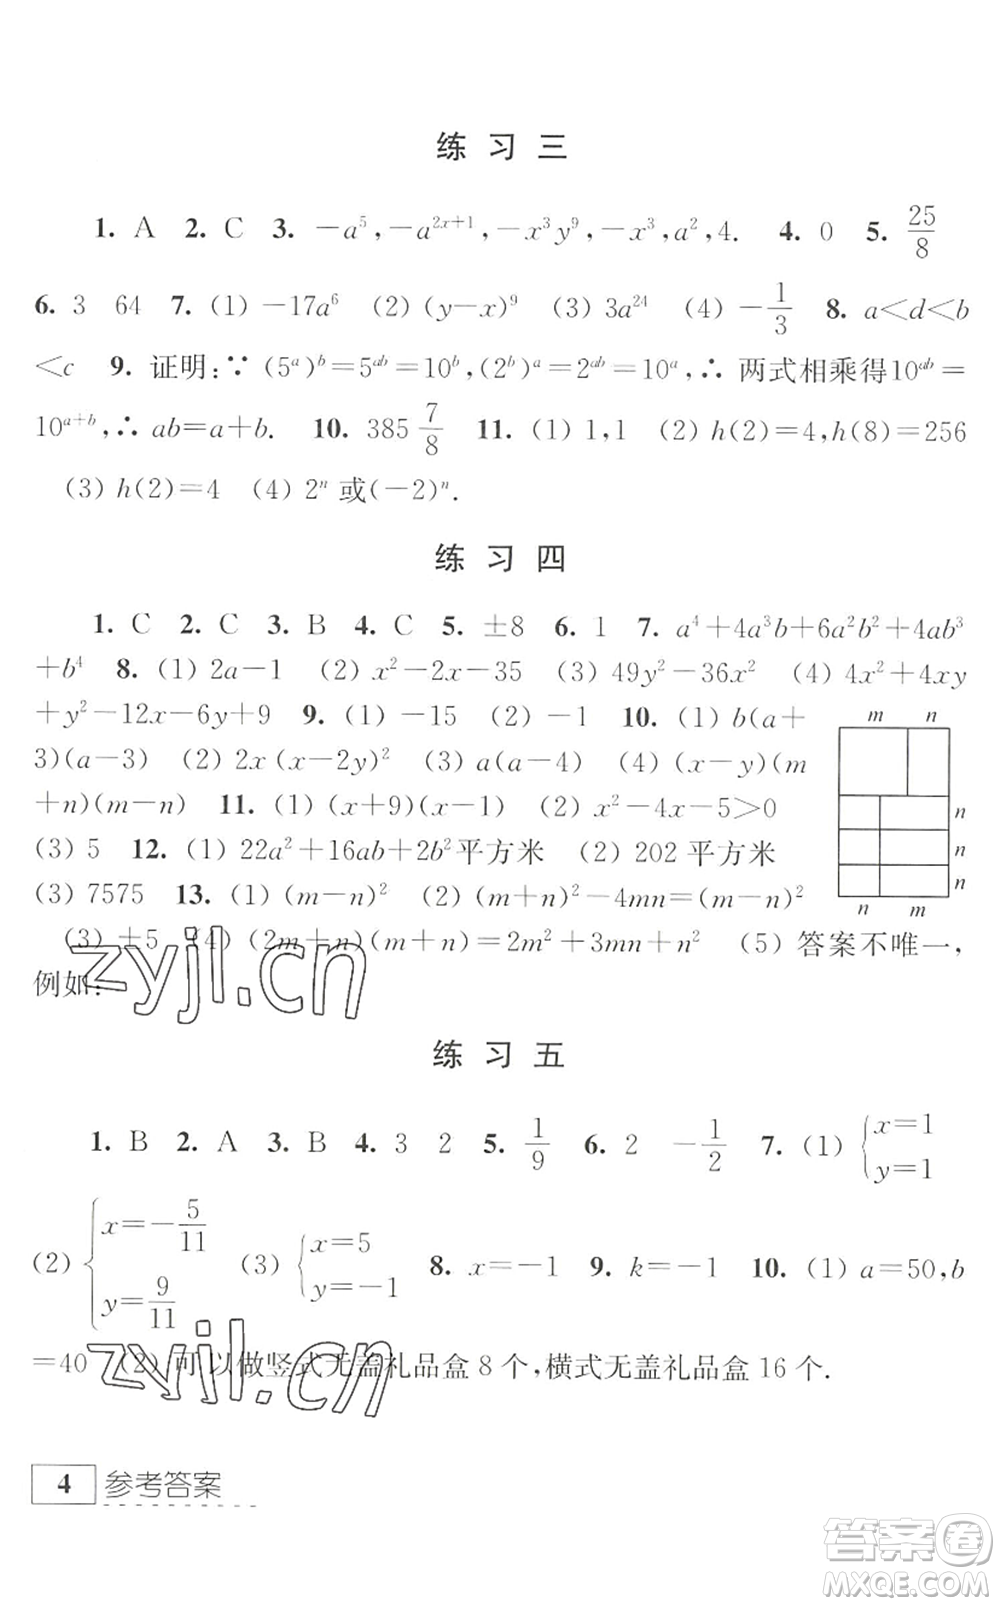 练 习 三
1. A 2. C 3. $-a^5, -a^{2x+1}, -x^3y^9, -x^3, a^2, 4.$ 4. 0 5. $\frac{25}{8}$
6. 3 64 7. (1) $-17a^6$ (2) $(y-x)^9$ (3) $3a^{24}$ (4) $-\frac{1}{3}$ 8. $a<d<b$
$<c$ 9. 证明:∵ $(5^a)^b=5^{ab}=10^b, (2^b)^a=2^{ab}=10^a$,∴ 两式相乘得$10^{ab}=$
$10^{a+b}$,∴ $ab=a+b.$ 10. $385\frac{7}{8}$ 11. (1) 1,1 (2) $h(2)=4, h(8)=256$
(3) $h(2)=4$ (4) $2^n$ 或$(-2)^n$.
练 习 四
1. C 2. C 3. B 4. C 5. ±8 6. 1 7. $a^4+4a^3b+6a^2b^2+4ab^3$
$+b^4$ 8. (1) $2a-1$ (2) $x^2-2x-35$ (3) $49y^2-36x^2$ (4) $4x^2+4xy$
$+y^2-12x-6y+9$ 9. (1) $-15$ (2) $-1$ 10. (1) $b(a+$
$3)(a-3)$ (2) $2x(x-2y)^2$ (3) $a(a-4)$ (4) $(x-y)(m$
$+n)(m-n)$ 11. (1) $(x+9)(x-1)$ (2) $x^2-4x-5>0$
(3) 5 12. (1) $22a^2+16ab+2b^2$平方米 (2) 202 平方米
(3) 7575 13. (1) $(m-n)^2$ (2) $(m+n)^2-4mn=(m-n)^2$
m n
n
n
n
n m
(3) ±5 (4) $(2m+n)(m+n)=2m^2+3mn+n^2$ (5) 答案不唯一,
例如:
zyjl.cn
练 习 五
1. B 2. A 3. B 4. 3 2 5. $\frac{1}{9}$ 6. 2 $-\frac{1}{2}$ 7. (1) $\begin{cases}x=1\\y=1\end{cases}$
(2) $\begin{cases}x=-\frac{5}{11}\\y=\frac{9}{11}\end{cases}$ (3) $\begin{cases}x=5\\y=-1\end{cases}$ 8. $x=-1$ 9. $k=-1$ 10. (1) $a=50, b$
$=40$ (2) 可以做竖式无盖礼品盒 8 个,横式无盖礼品盒 16 个.
zyjl.cn
4 参考答案
答案卷
MXQE.COM